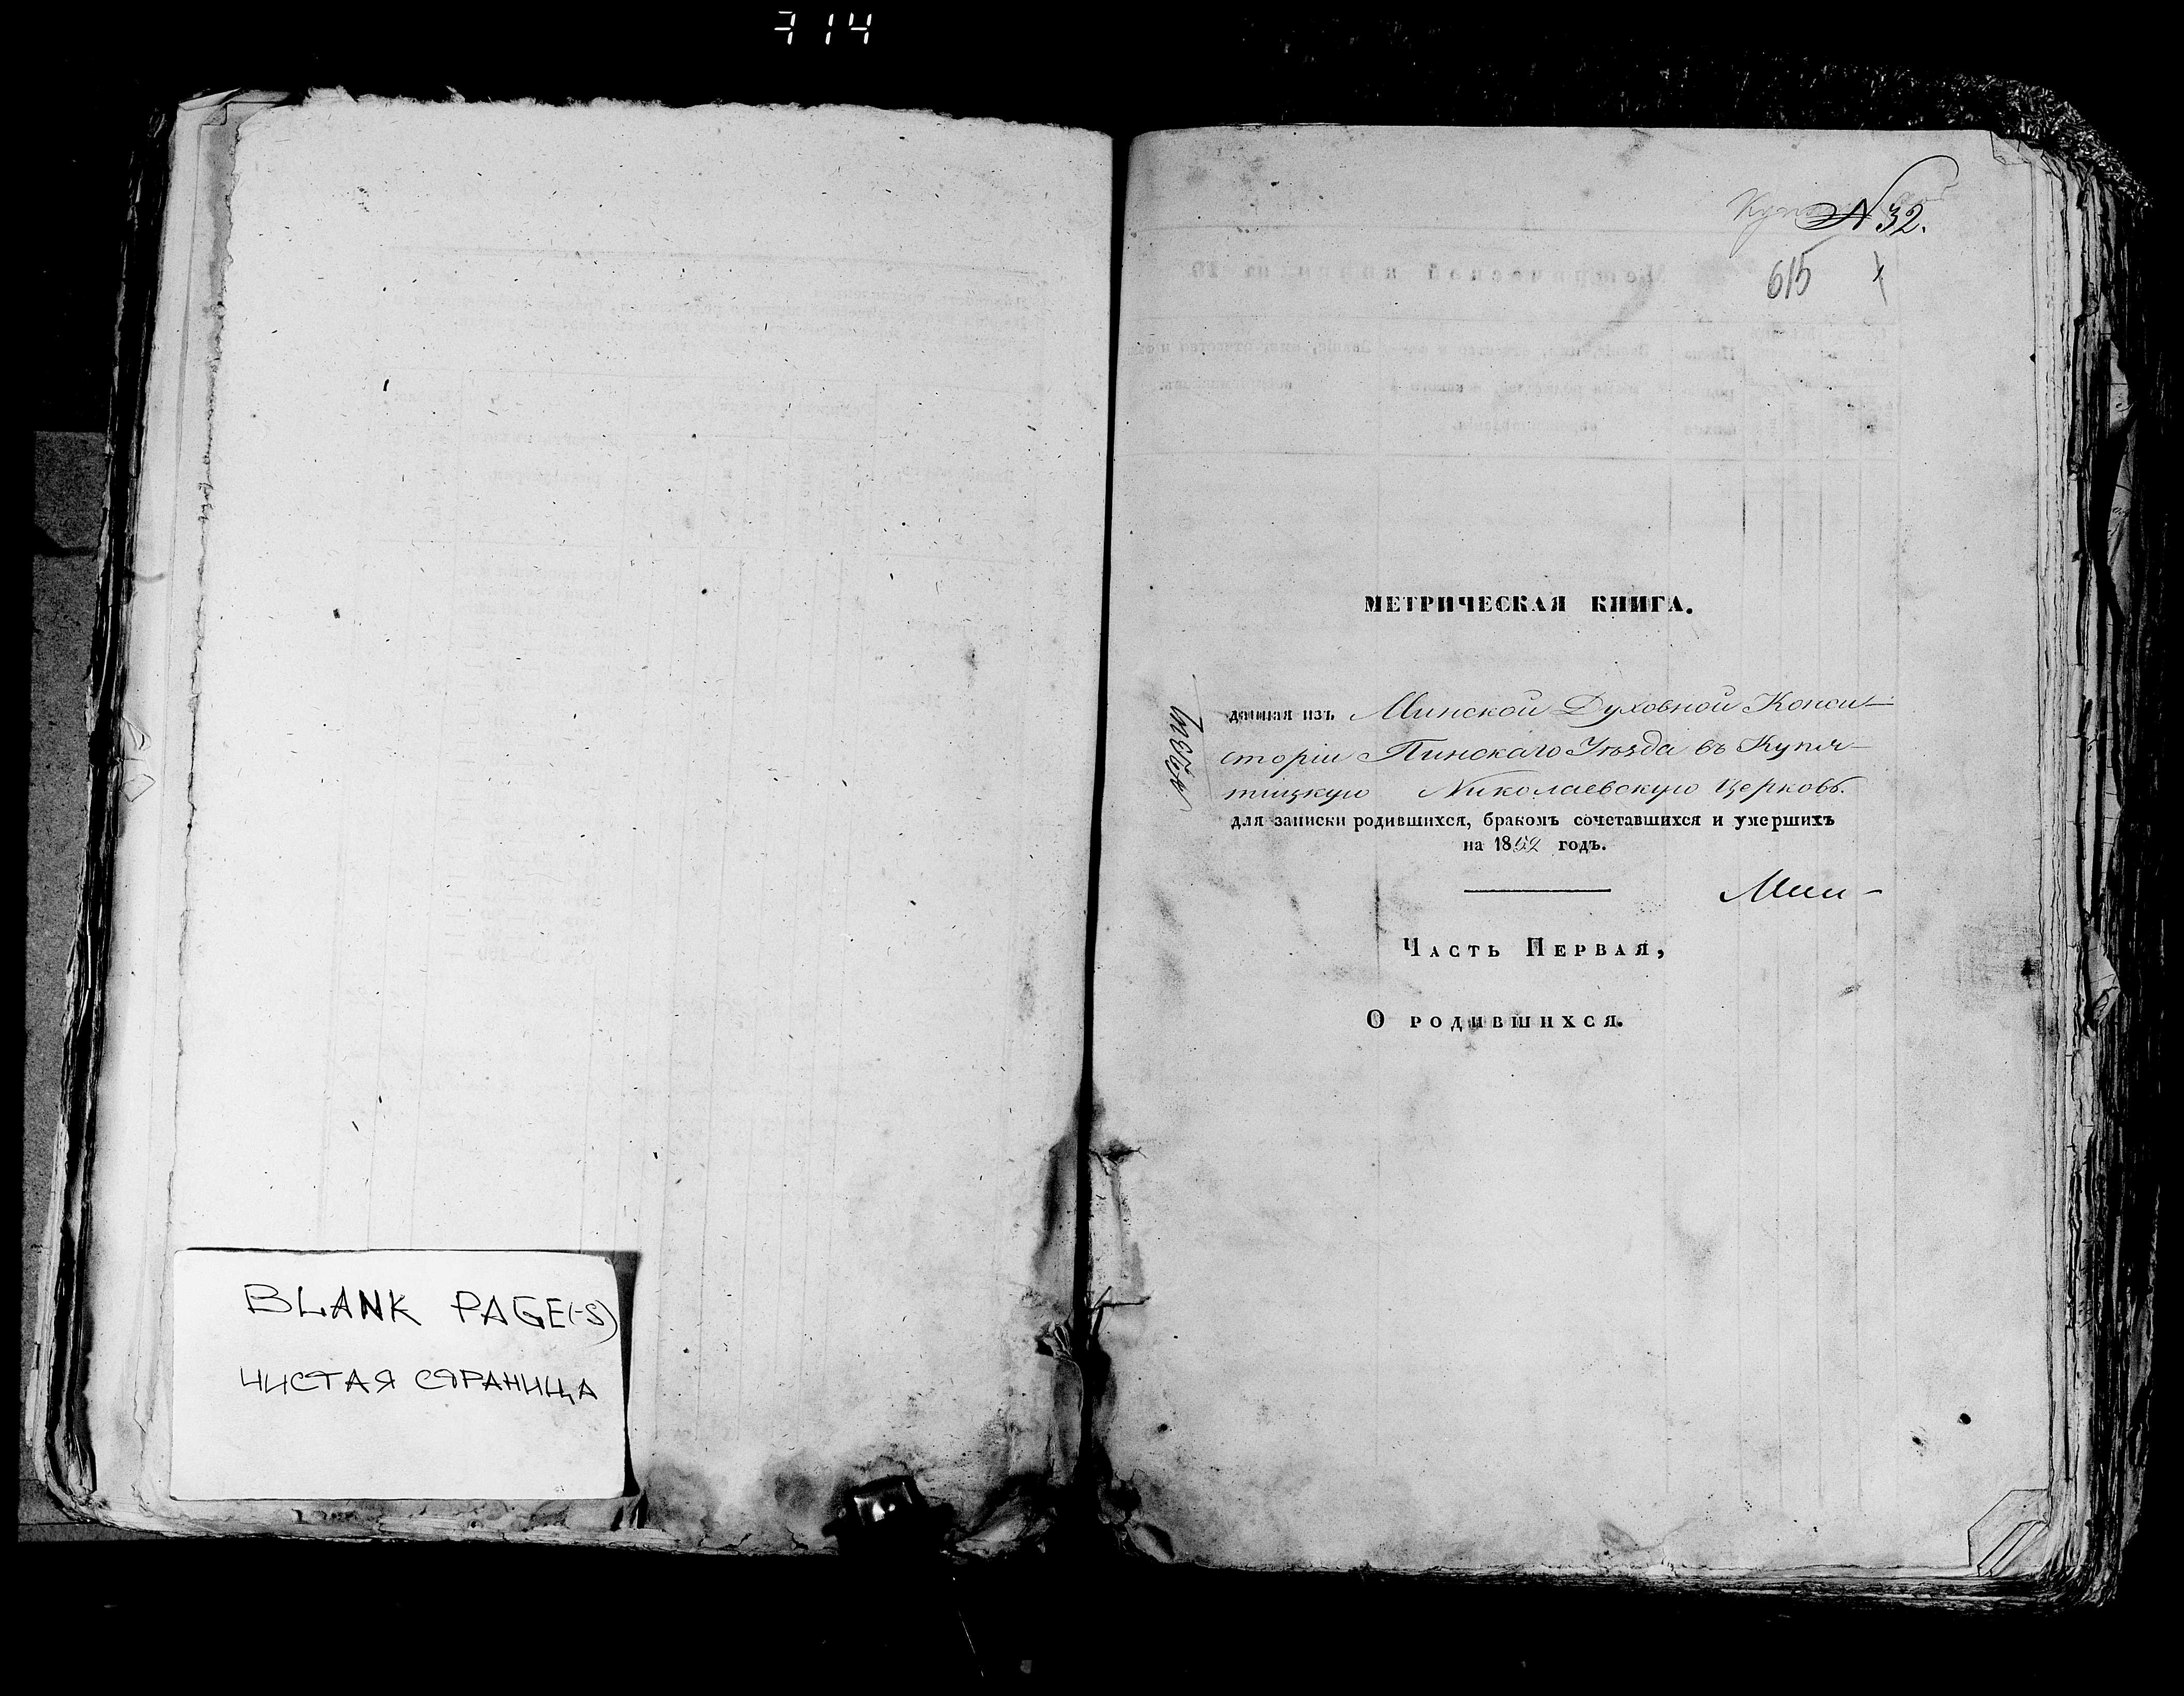 714
BLANK PAGE(-S)
ЧИСТАЯ СТРАНИЦА
N 32.
615
МЕТРИЧЕСКАЯ КНИГА.
данная изъ Минской Духовной Конси-
сторіи Пинскаго Уѣзда въ Купя-
тицкую Николаевскую Церковь.
для записки родившихся, бракомъ сочетавшихся и умершихъ
на 1852 годъ.
Часть Первая,
О родившихся.